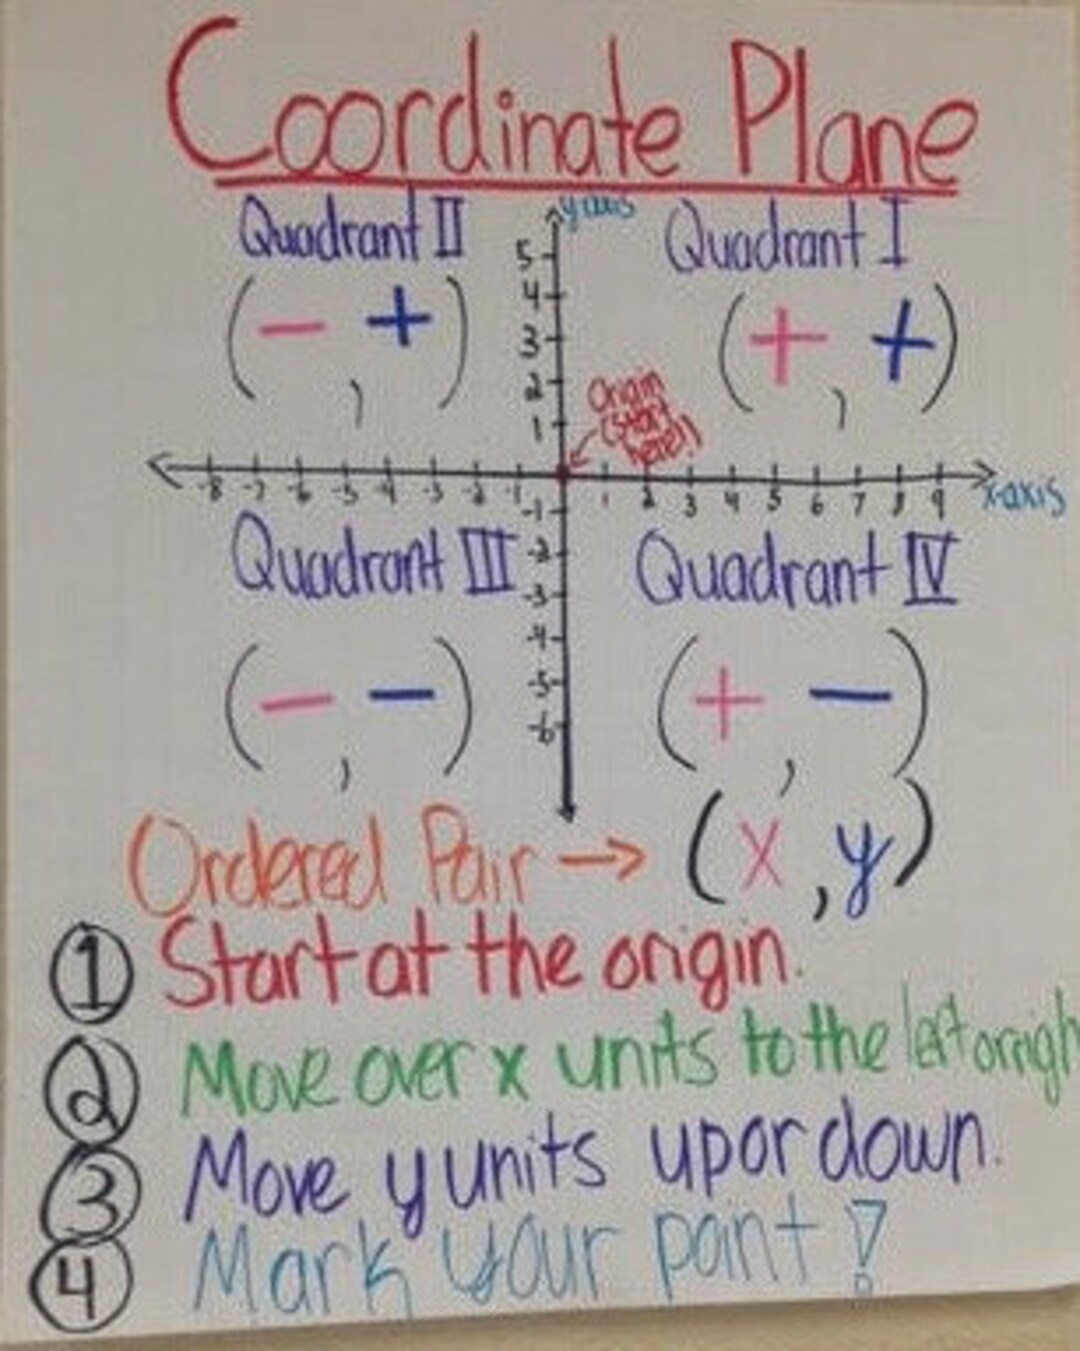 Coordinate Plane
y-axis
Quadrant II
Quadrant I
(- , +)
(+ , +)
5
4
3
2
1
Origin
(start
here!)
-8 -7 -6 -5 -4 -3 -2 -1 1 2 3 4 5 6 7 8 9
x-axis
-1
-2
-3
-4
-5
-6
Quadrant III
Quadrant IV
(- , -)
(+ , -)
Ordered Pair → (x, y)
1 Start at the origin.
2 Move over x units to the left or righ
3 Move y units up or down.
4 Mark your point!